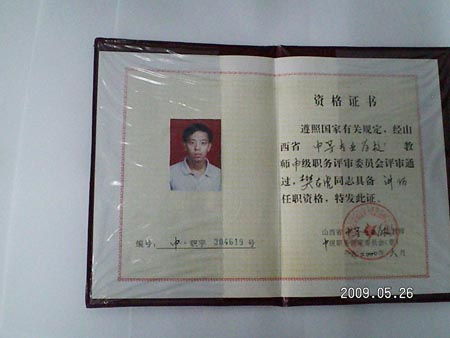 资格证书
遵照国家有关规定，经山
西省 中等专业学校 教
师中级职务评审委员会评审通
过，同志具备 讲师
任职资格，特发此证。
编号： 中 · 职字 304619 号
山西省中等专业学校教师
中级职务评审委员会(章)
2009.05.26